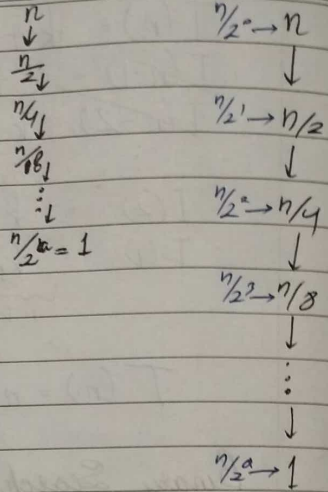 n
↓
n/2
↓
n/4
↓
n/8
↓
⋮
↓
n/2ᵃ = 1
n/2⁰ → n
↓
n/2¹ → n/2
↓
n/2² → n/4
↓
n/2³ → n/8
↓
⋮
↓
n/2ᵃ → 1